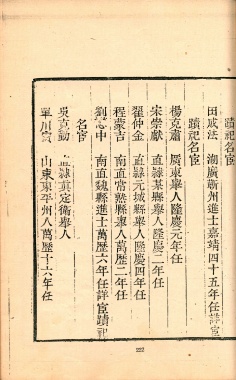 蹟祀名宦
田成法 湖廣蘄州進士嘉靖四十五年任詳宦
蹟祀名宦
楊克肅 廣東舉人隆慶元年任
宋崇獻 直隸縣舉人隆慶二年任
翟仲金 直隸元城縣舉人隆慶四年任
程蒙吉 南直常熟縣舉人萬歷二年任
劉志中 南直魏縣進士萬歷六年任詳宦蹟祀
名宦
吳克勤 直隸真定衛舉人
單 山東東平州人萬歷十六年任
222